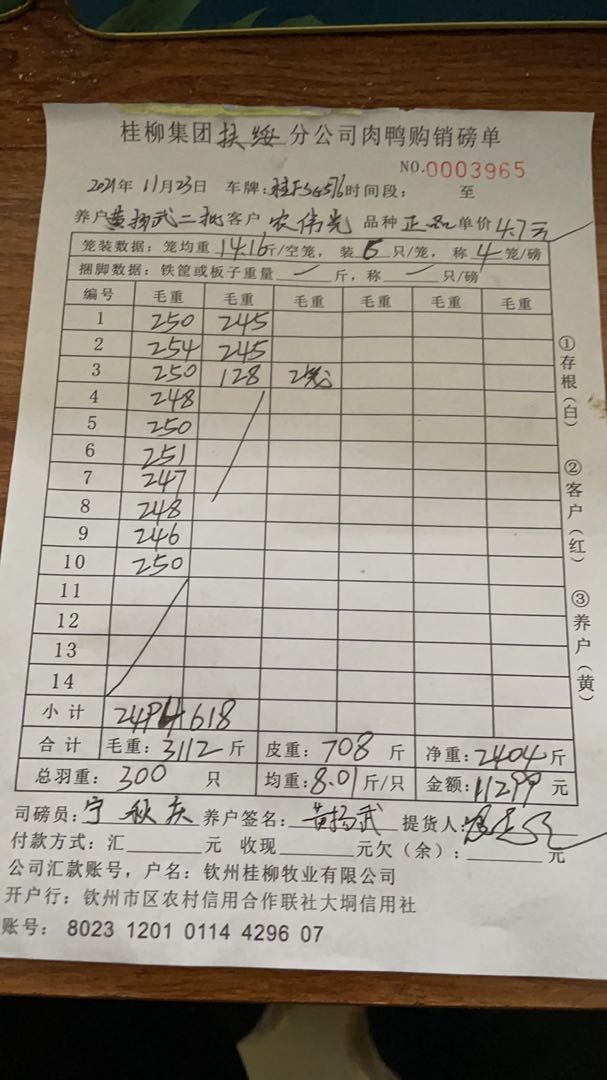 桂柳集团扶绥分公司肉鸭购销磅单
NO.0003965
2021年11月23日 车牌: 时间段: 至
养户黄扬武二批客户农伟光 品种正品单价4.7元
笼装数据: 笼均重14.16斤/空笼, 装6只/笼, 称4笼/磅
捆脚数据: 铁筐或板子重量 斤, 称 只/磅
编号 毛重 毛重 毛重 毛重 毛重 毛重
1 250 245
2 254 245
3 250 128 2笼
4 248
5 250
6 251
7 247
8 248
9 246
10 250
11
12
13
14
小计 2494 618
合计 毛重: 3112 斤 皮重: 708 斤 净重: 2404 斤
总羽重: 300 只 均重: 8.01 斤/只 金额: 11299 元
司磅员: 宁秋庆 养户签名: 黄扬武 提货人:
付款方式: 汇 元 收现 元欠(余): 元
公司汇款账号, 户名: 钦州桂柳牧业有限公司
开户行: 钦州市区农村信用合作联社大垌信用社
账号: 8023 1201 0114 4296 07
①存根(白)
②客户(红)
③养户(黄)